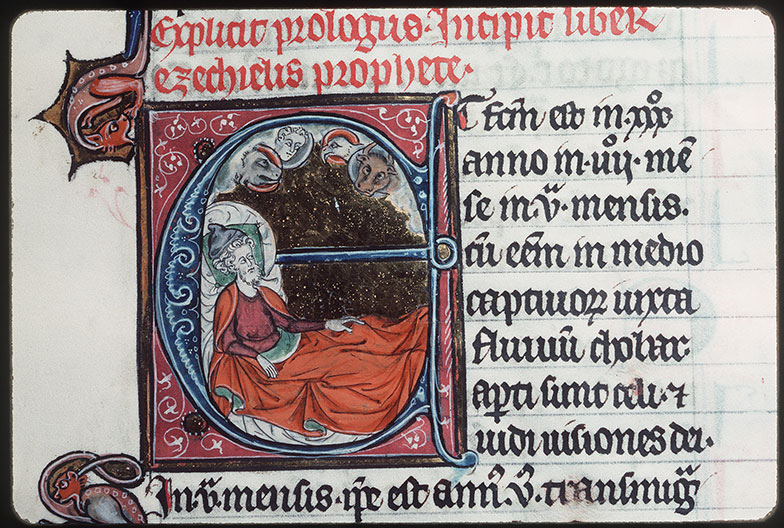 Explicit prologus. Incipit liber
ezechielis prophete.
ET fcm̄ est in .xxxo
anno in .iiijo. mē
se in .va. mensis.
cū eēm in medio
captiuoꝝ iuxta
fluuiū chobar.
aꝑti sunt celi. ⁊
uidi uisiones dei.
In .va. mensis. ip̄e est ann9 .v9. transmigͣ